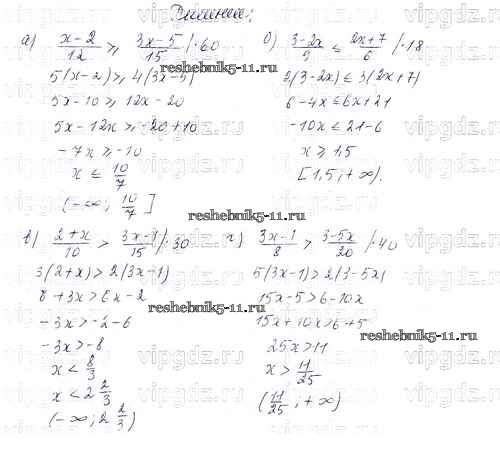 Решение:
а) (x-2)/12 ≥ (3x-5)/15 /·60
5(x-2) ≥ 4(3x-5)
5x-10 ≥ 12x-20
5x-12x ≥ -20+10
-7x ≥ -10
x ≤ 10/7
(-∞; 10/7]
б) (3-2x)/9 ≤ (2x+7)/6 /·18
2(3-2x) ≤ 3(2x+7)
6-4x ≤ 6x+21
-10x ≤ 21-6
x ≥ 1,5
[1,5; +∞).
в) (2+x)/10 > (3x-1)/15 /·30
3(2+x) > 2(3x-1)
6+3x > 6x-2
-3x > -2-6
-3x > -8
x < 8/3
x < 2 2/3
(-∞; 2 2/3)
г) (3x-1)/8 > (3-5x)/20 /·40
5(3x-1) > 2(3-5x)
15x-5 > 6-10x
15x+10x > 6+5
25x > 11
x > 11/25
(11/25; +∞)
reshebnik5-11.ru
reshebnik5-11.ru
reshebnik5-11.ru
reshebnik5-11.ru
vipgdz.ru